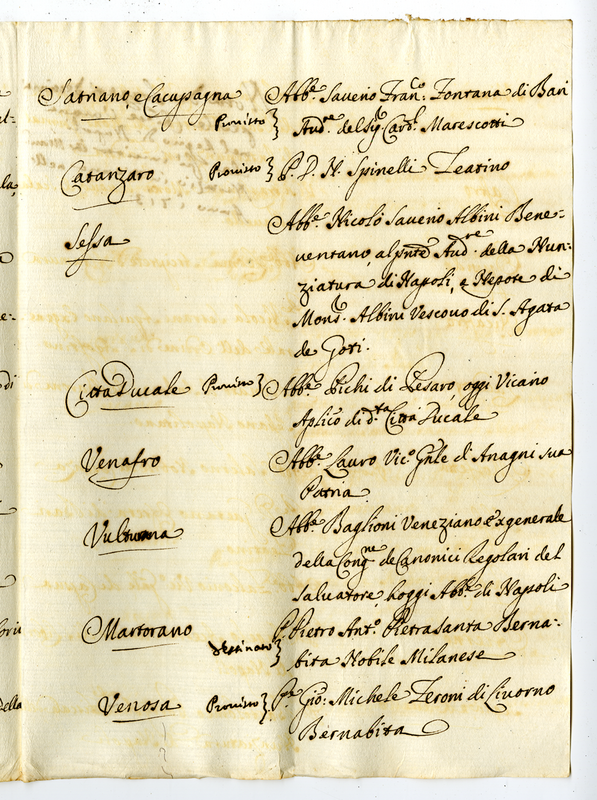 Satriano, e Cacupagna Abb.e Saverio Fran.co Fontana di Bari
Provisto} Aud.re del Sig.r Card.l Marescotti
Catanzaro Provisto} P. D. N. Spinelli Teatino
Sessa Abb.e Nicolò Saverio Albini Bene-
ventano, al pnte Aud.re della Nun-
ziatura di Napoli, e Nepote di
Mons.r Albini Vescovo di S. Agata
de Goti.
Città Ducale Provisto} Abb.e Pichi di Pesaro, oggi Vicario
Aplico di d.ta Città Ducale
Venafro Abb.e Lauro Vic.o Gnle di Anagni sua
Patria
Vulturana Abb.e Baglioni Veneziano exgenerale
della Cong.ne de Canonici Regolari del
Salvatore, hoggi Abb.e di Napoli
Martorano P. Pietro Ant.o Pietrasanta Berna-
destinato} bita Nobile Milanese
Venosa Provisto} P.re Gio: Michele Teroni di Livorno
Bernabita